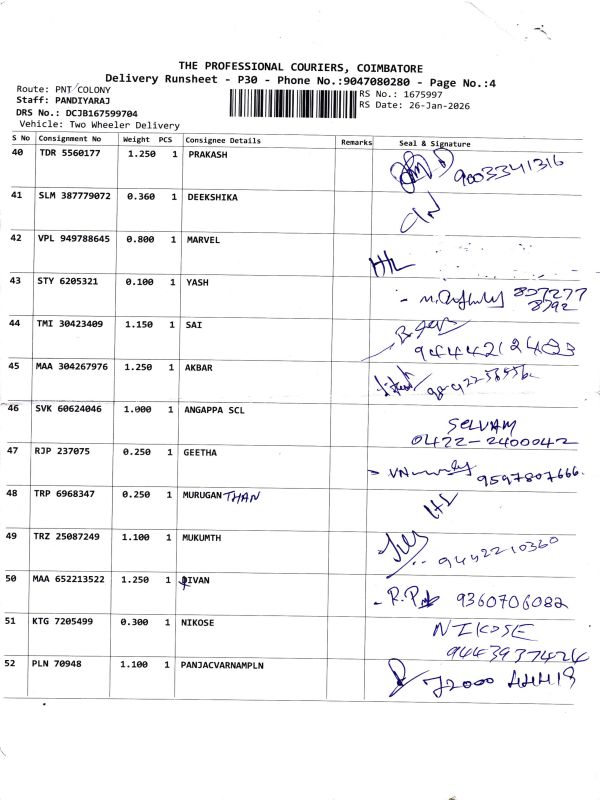 THE PROFESSIONAL COURIERS, COIMBATORE
Delivery Runsheet - P30 - Phone No.:9047080280 - Page No.:4
Route: PNT COLONY
Staff: PANDIYARAJ
DRS No.: DCJB167599704
Vehicle: Two Wheeler Delivery
RS No.: 1675997
RS Date: 26-Jan-2026
S No Consignment No Weight PCS Consignee Details Remarks Seal & Signature
40 TDR 5560177 1.250 1 PRAKASH 9003341316
41 SLM 387779072 0.360 1 DEEKSHIKA
42 VPL 949788645 0.800 1 MARVEL
43 STY 6205321 0.100 1 YASH 807277
8792
44 TMI 30423409 1.150 1 SAI
45 MAA 304267976 1.250 1 AKBAR
46 SVK 60624046 1.000 1 ANGAPPA SCL SELVAM
0422-2400042
47 RJP 237075 0.250 1 GEETHA 9597807666.
48 TRP 6968347 0.250 1 MURUGAN THAN
49 TRZ 25087249 1.100 1 MUKUMTH 9442210360
50 MAA 652213522 1.250 1 DIVAN 9360706082
51 KTG 7205499 0.300 1 NIKOSE NIKOSE
9443937424
52 PLN 70948 1.100 1 PANJACVARNAMPLN 72000 44418